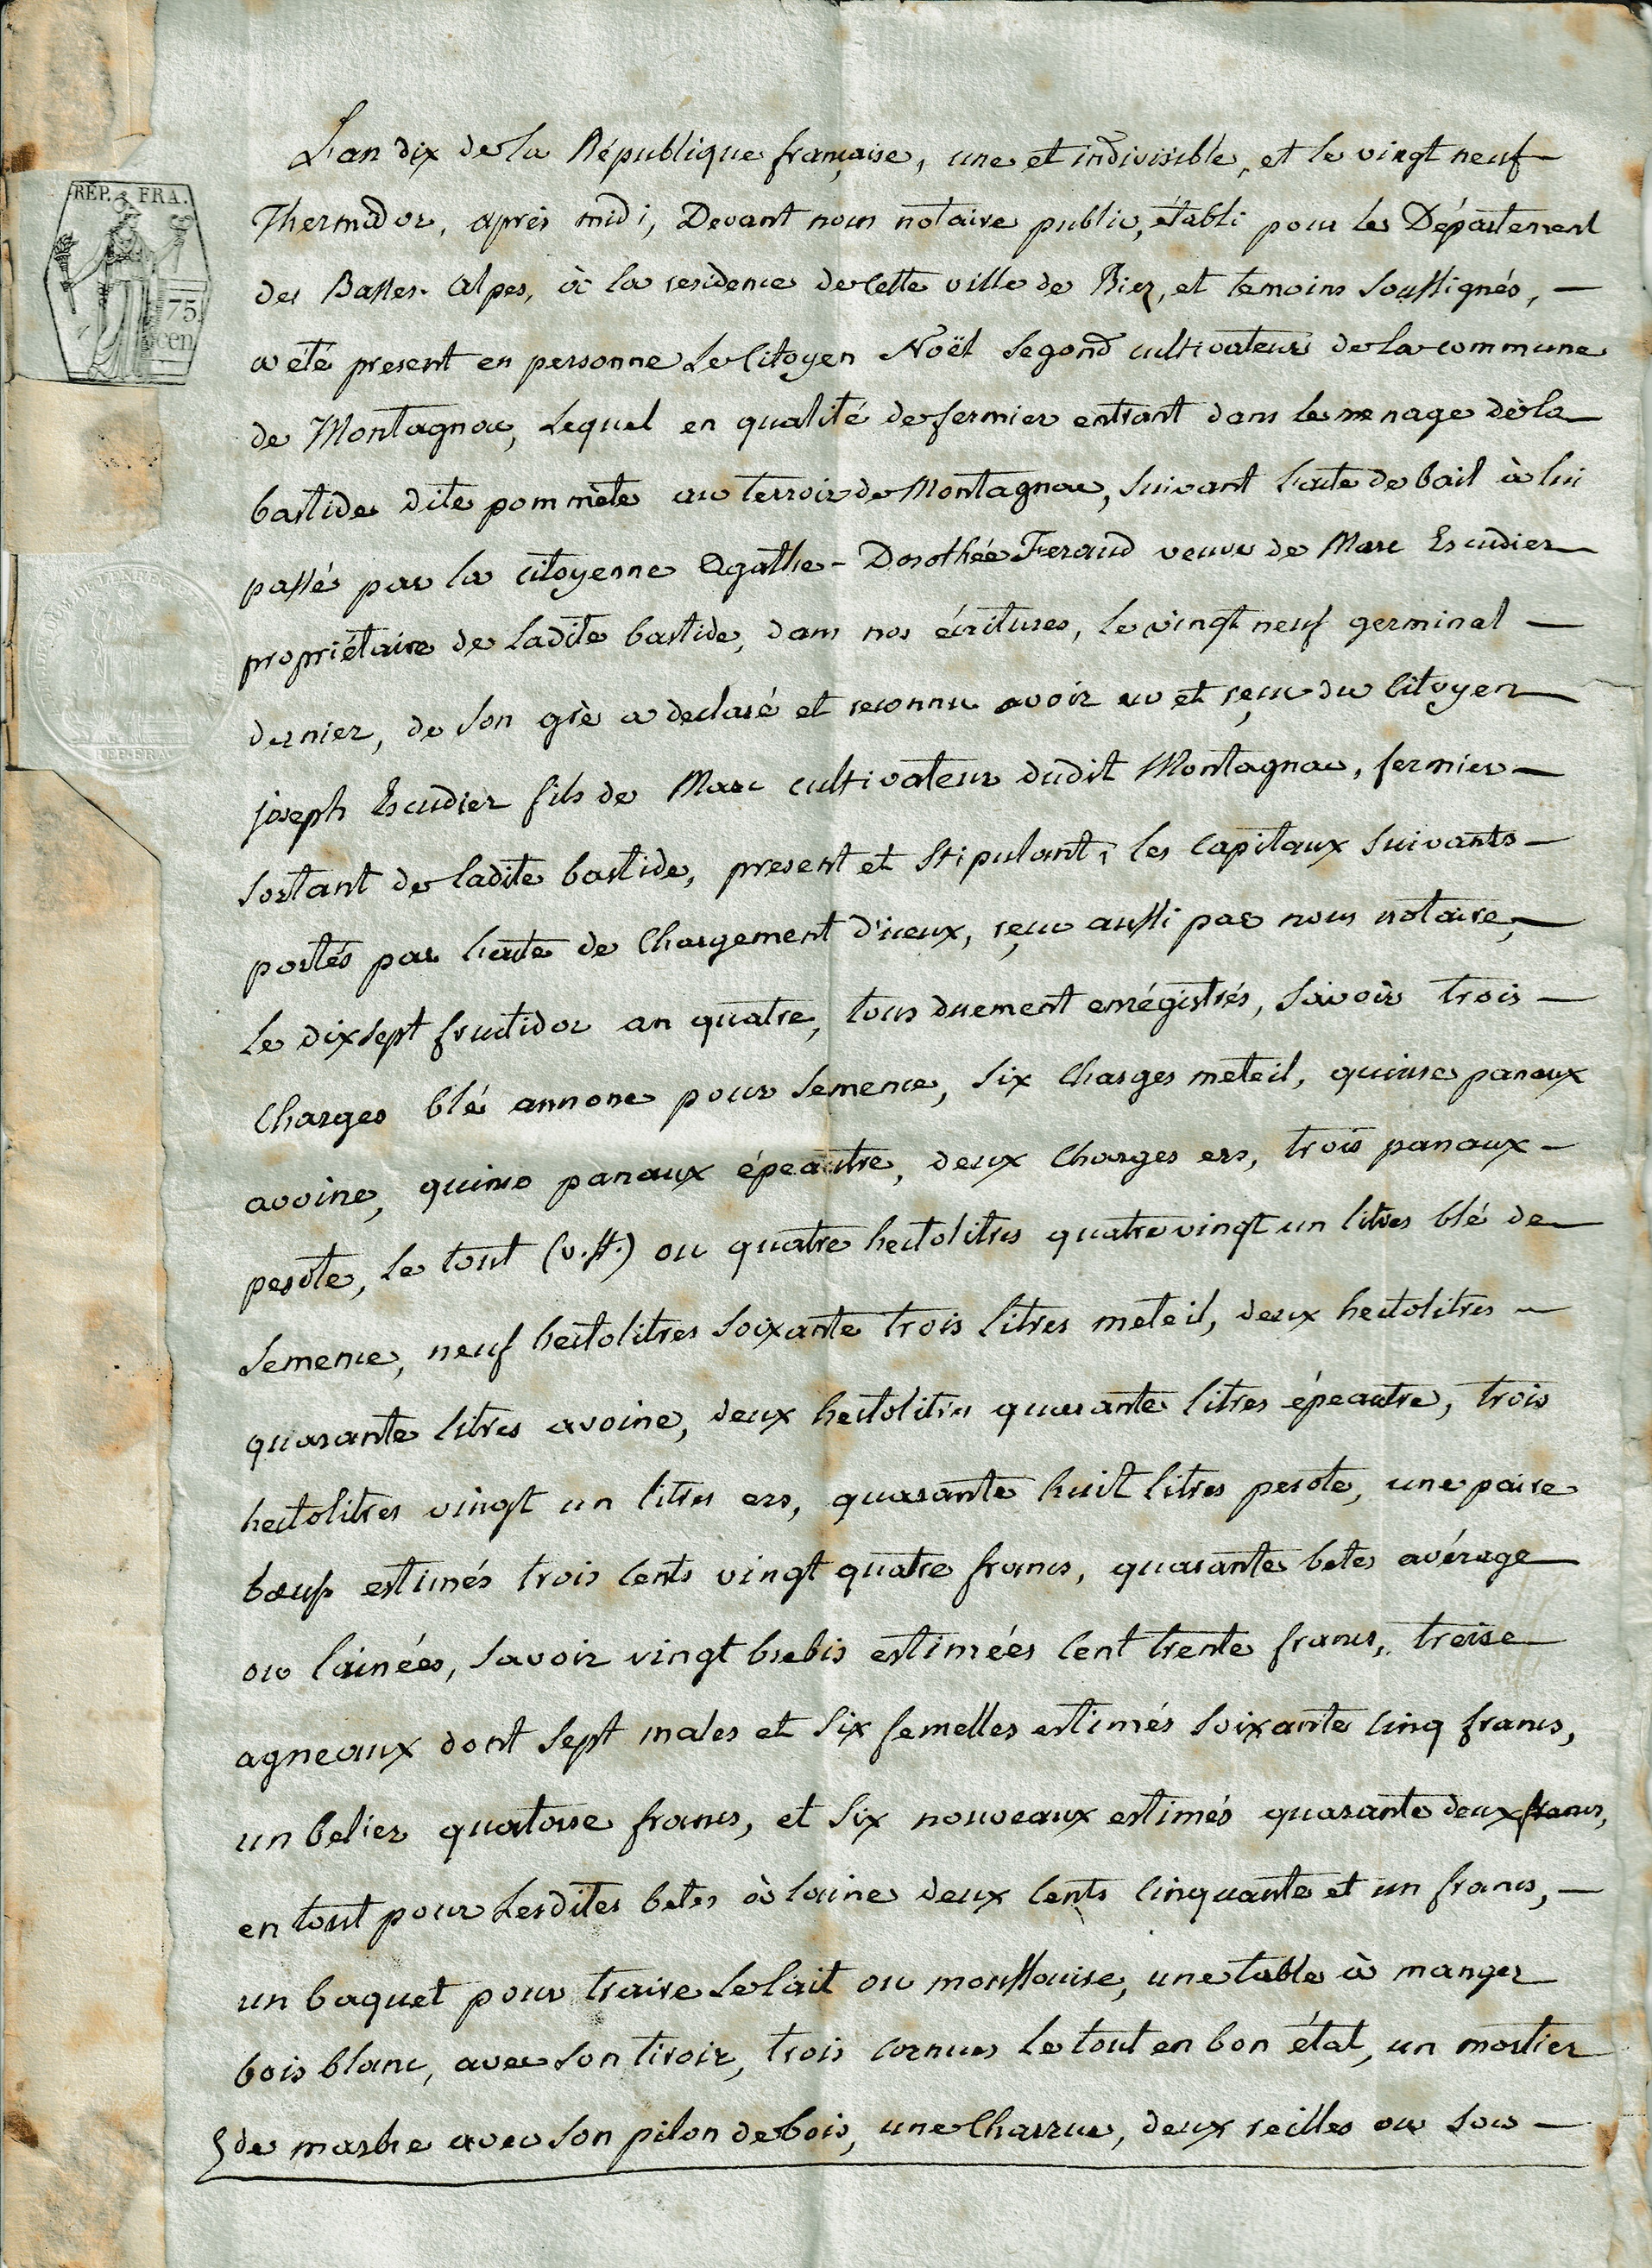 REP. FRA.
75.
cen.
REP. FRA
L'an dix de la République française, une et indivisible, et le vingt neuf
Thermidor, après midi, Devant nous notaire public, établi pour le Département
des Basses-alpes, à la residence de cette ville de Riez, et temoins soussignés,
a été present en personne le Citoyen Noël Segond cultivateur de la commune
de Montagnac, Lequel en qualité de fermier entrant dans le menage de la
bastide dite pommète au terroir de Montagnac, suivant l'acte de bail à lui
passé par la citoyenne Agathe-Dorothée Feraud veuve de Marc Escudier
propriétaire de ladite bastide, dans nos écritures, le vingt neuf germinal
dernier, de son gré a declaré et reconnu avoir eu et reçu du Citoyen
joseph Escudier fils de Marc cultivateur dudit Montagnac, fermier
sortant de ladite bastide, present et stipulant, les Capitaux suivants
portés par l'acte de Chargement d'iceux, reçu aussi par nous notaire,
Le dix sept fructidor an quatre, tous duement enrégistrés, savoir trois
Charges blé annone pour semence, six Charges meteil, quinse panaux
avoine, quinse panaux épeautre, deux Charges ers, trois panaux
pesote, le tout (v. st.) ou quatre hectolitres quatre vingt un litres blé de
semence, neuf hectolitres soixante trois litres meteil, deux hectolitres
quarante litres avoine, deux hectolitres quarante litres épeautre, trois
hectolitres vingt un litres ers, quarante huit litres pesote, une paire
bœufs estimés trois cents vingt quatre francs, quarante betes avérage
ou lainées, savoir vingt brebis estimées cent trente francs, treise
agneaux dont sept males et six femelles estimés soixante cinq francs,
un belier quatorse francs, et six nouveaux estimés quarante deux francs,
en tout pour lesdites betes à laine deux cents cinquante et un francs,
un baquet pour traire le lait ou moussouire, une table à manger
bois blanc, avec son tiroir, trois cornues le tout en bon état, un mortier
de marbre avec son pilon de bois, une Charrue, deux reilles ou socs